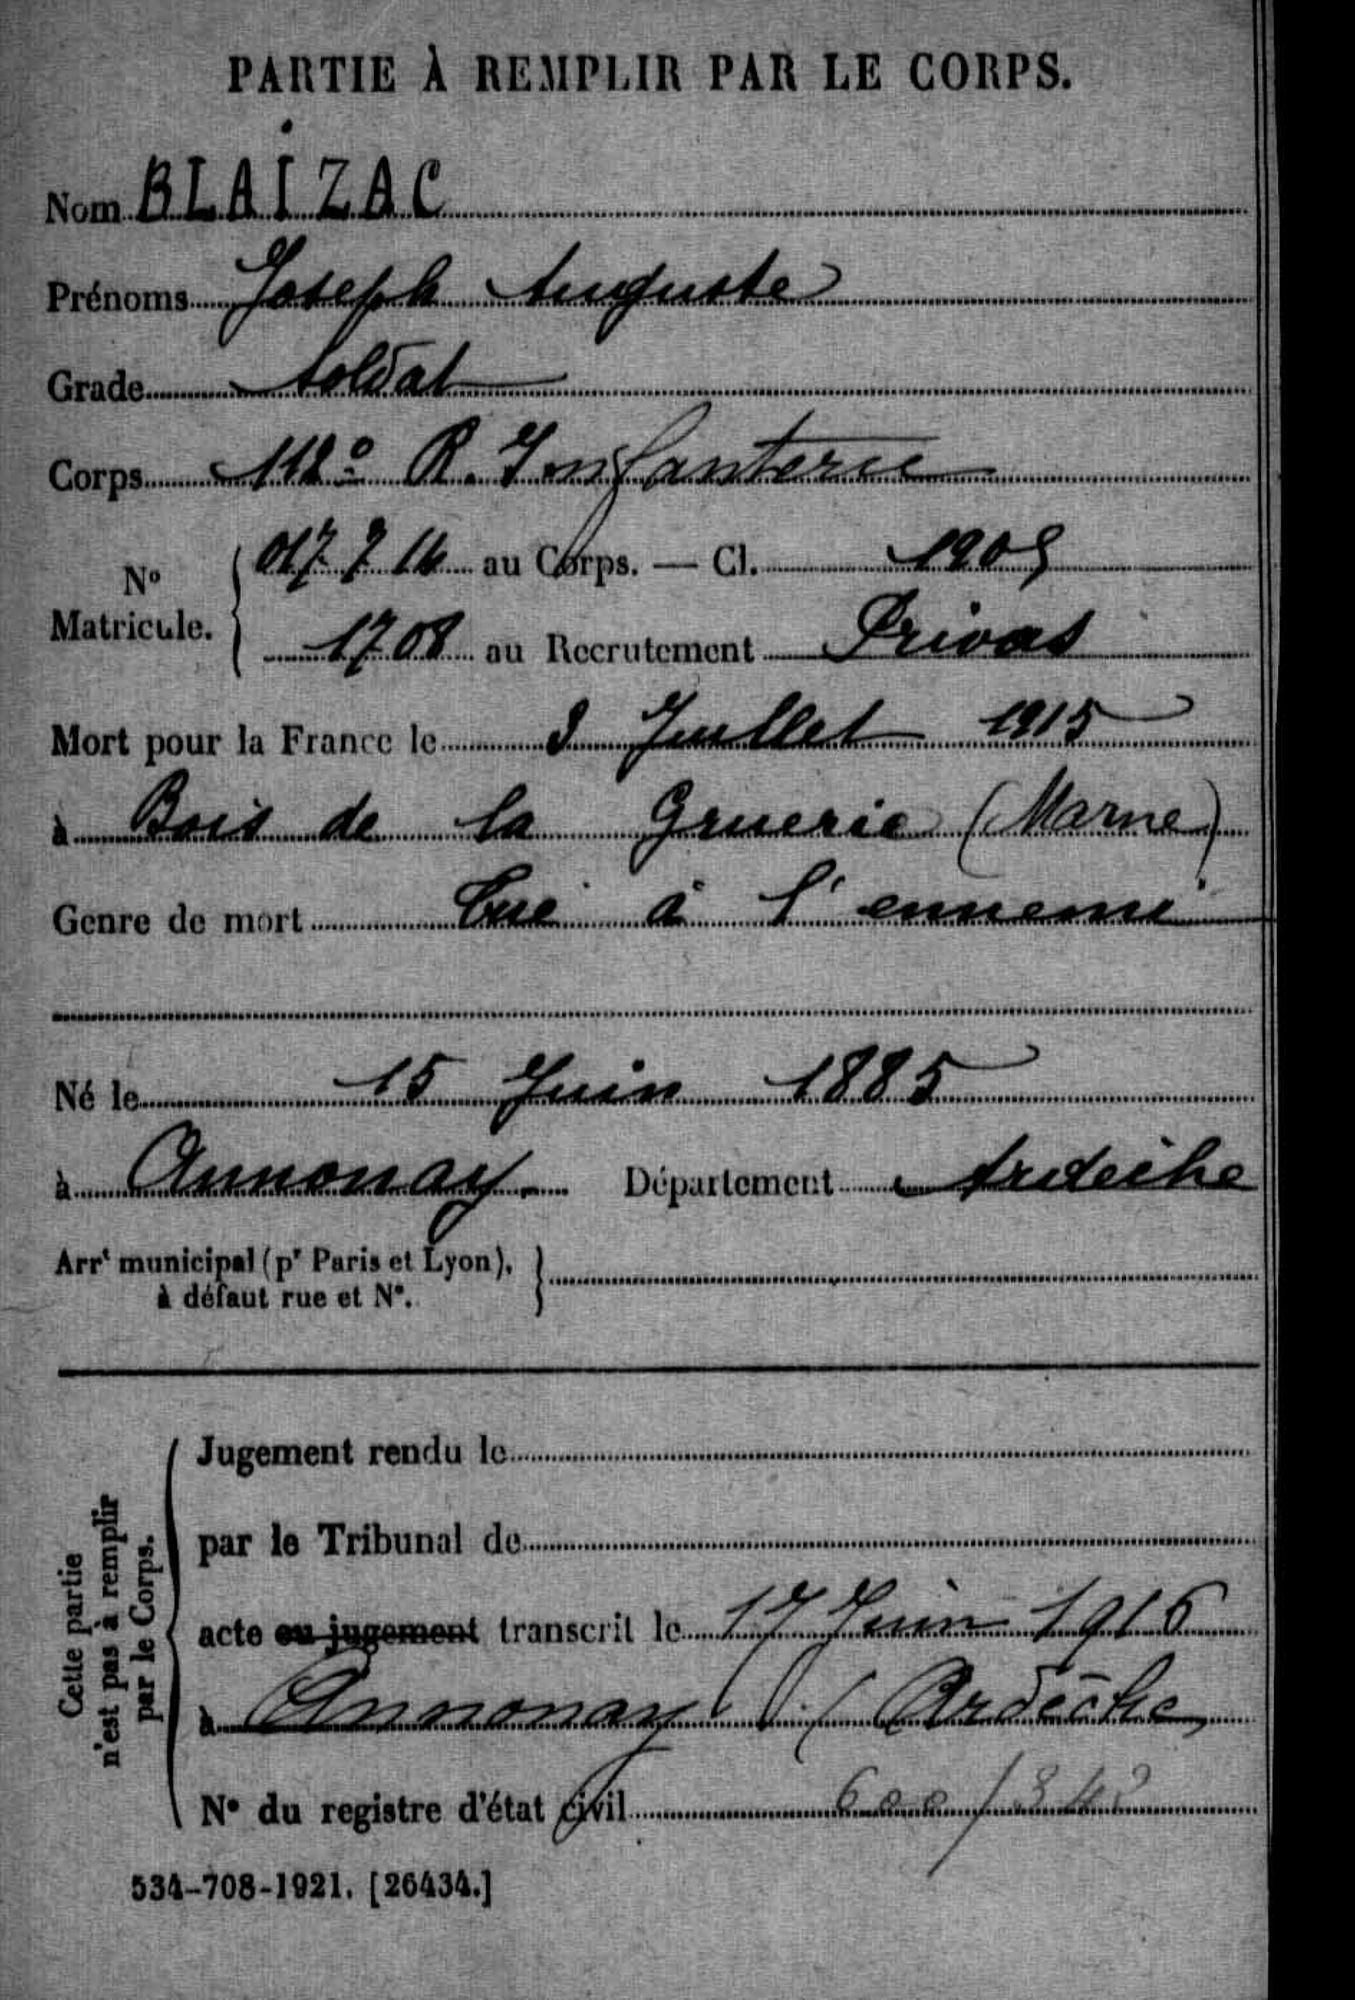 PARTIE À REMPLIR PAR LE CORPS.
Nom BLAIZAC
Prénoms Joseph Auguste
Grade Soldat
Corps 112e R. Infanterie
No Matricule. au Corps. — Cl. 1905
1708 au Recrutement Privas
Mort pour la France le Juillet 1915
à Bois de la Gruerie (Marne)
Genre de mort Tué à l'ennemi
Né le 15 Juin 1885
à Annonay Département Ardèche
Arrt municipal (pr Paris et Lyon),
à défaut rue et No.
Cette partie
n'est pas à remplir
par le Corps.
Jugement rendu le
par le Tribunal de
acte ou jugement transcrit le 17 Juin 1916
à Annonay (Ardèche
No du registre d'état civil 600/
534-708-1921. [26434.]